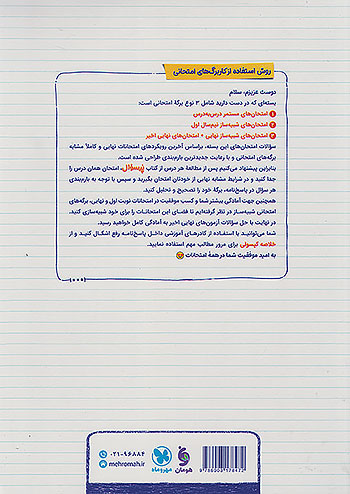 روش استفاده از کاربرگ‌های امتحانی
دوست عزیزم، سلام
بسته‌ای که در دست دارید شامل ۳ نوع برگهٔ امتحانی است:
۱ امتحان‌های مستمر درس‌به‌درس
۲ امتحان‌های شبیه‌ساز نیم‌سال اول
۳ امتحان‌های شبیه‌ساز نهایی + امتحان‌های نهایی اخیر
سؤالات امتحان‌های این بسته، براساس آخرین رویکردهای امتحانات نهایی و کاملاً مشابه
برگه‌های امتحانی و با رعایت جدیدترین بارم‌بندی طراحی شده است.
بنابراین پیشنهاد می‌کنیم پس از مطالعهٔ هر درس از کتاب پُرسؤال، امتحان همان درس را
جدا کنید و در شرایط مشابه نهایی از خودتان امتحان بگیرید و سپس با توجه به بارم‌بندی
هر سؤال در پاسخ‌نامه، برگهٔ خود را تصحیح و تحلیل کنید.
همچنین جهت آمادگی بیشتر شما و کسب موفقیت در امتحانات نوبت اول و نهایی، برگه‌های
امتحانی شبیه‌ساز در نظر گرفته‌ایم تا فضای این امتحانات را برای خود شبیه‌سازی کنید.
در نهایت با حل سؤالات آزمون‌های نهایی اخیر به آمادگی کامل خواهید رسید.
شما می‌توانید با استفاده از کادرهای آموزشی داخل پاسخ‌نامه رفع اشکال کنید و از
خلاصه کپسولی برای مرور مطالب مهم استفاده نمایید.
به امید موفقیت شما در همهٔ امتحانات
۰۲۱-۹۶۸۸۴
mehromah.ir
مهروماه
هومان